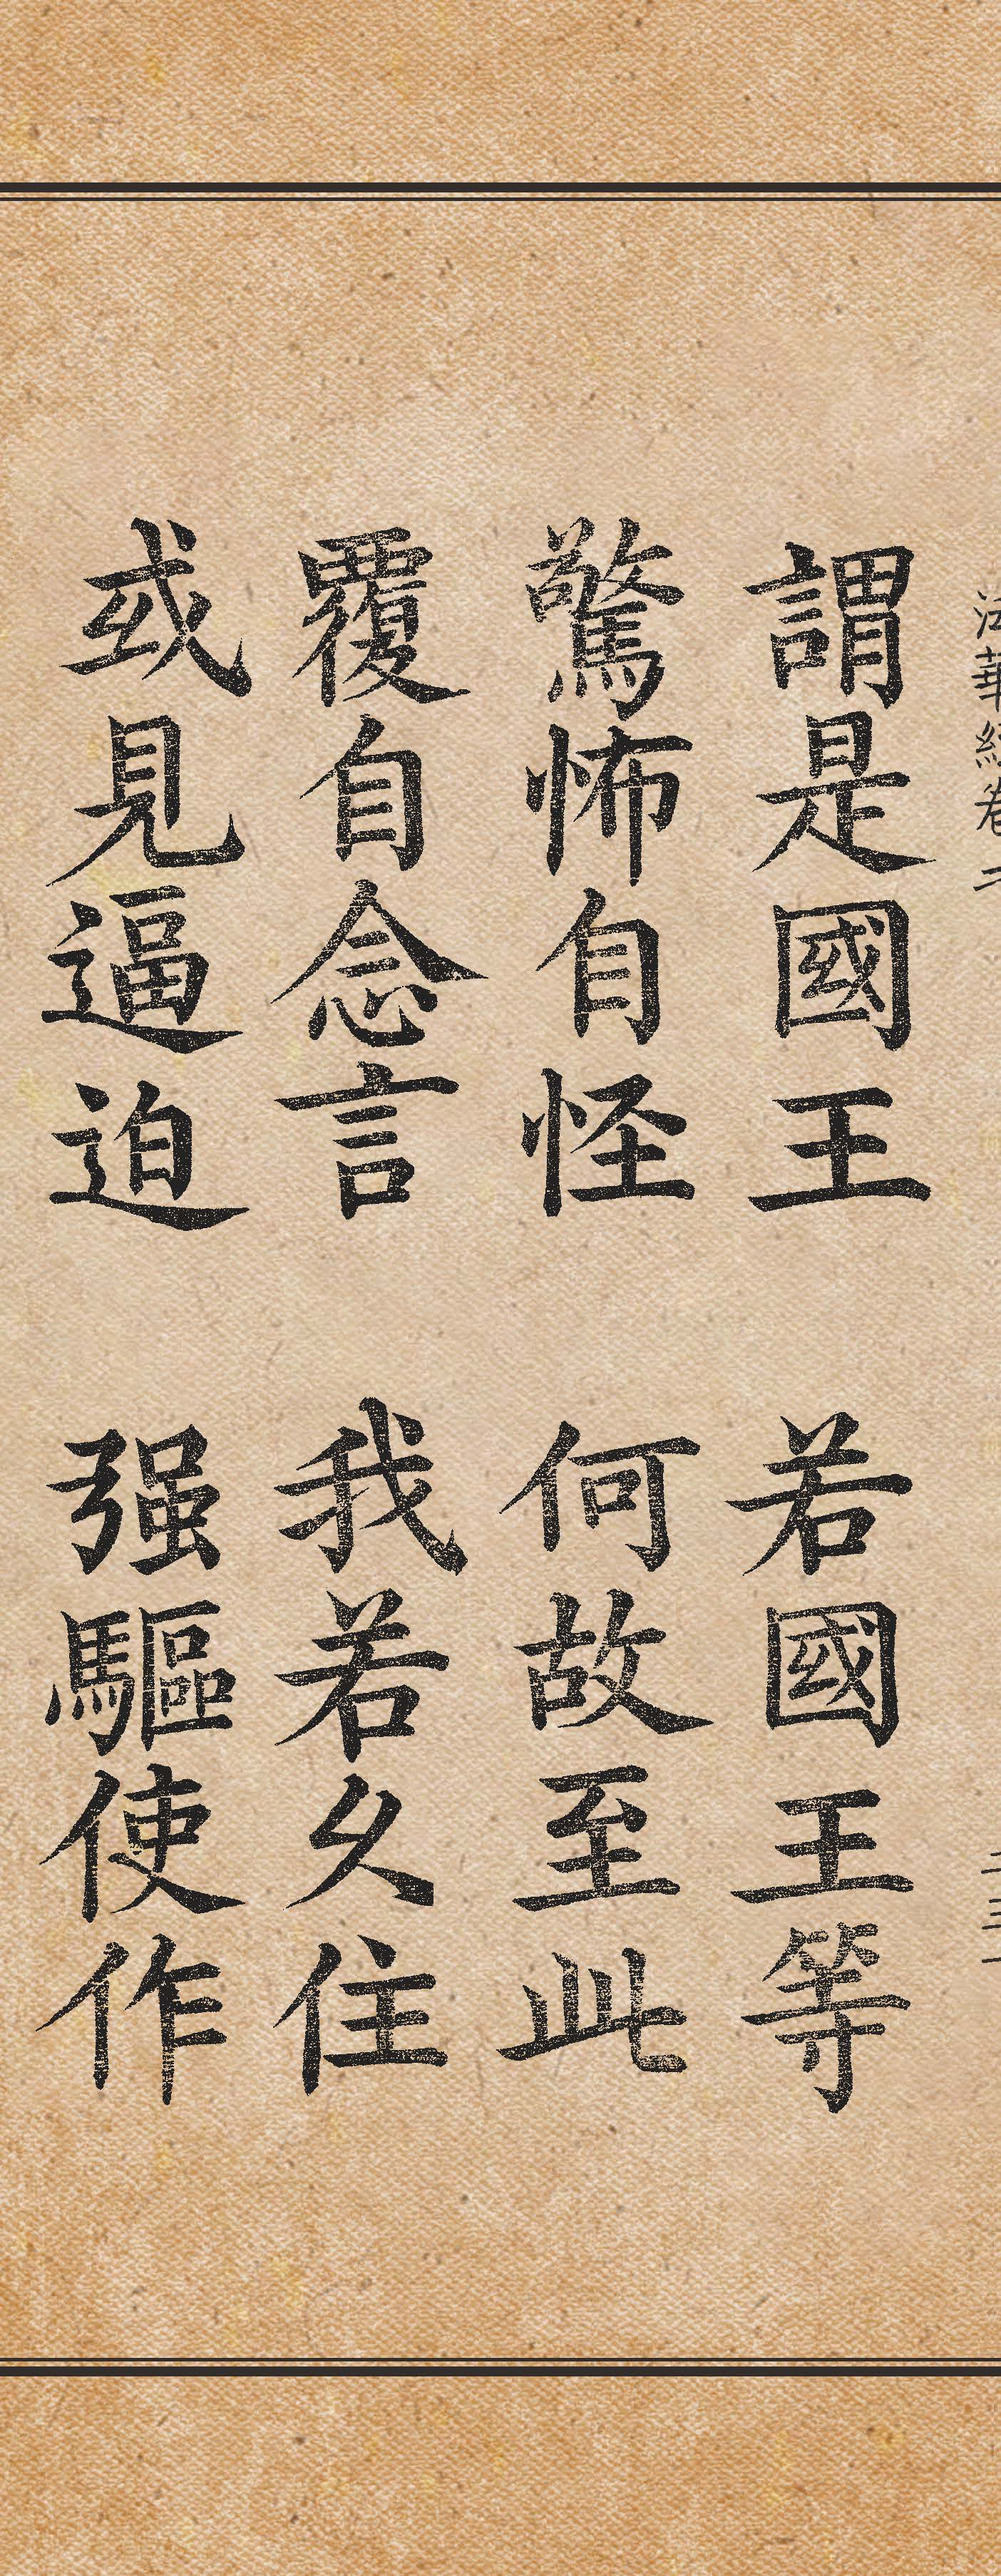 法華經卷二
謂是國王 若國王等
驚怖自怪 何故至此
覆自念言 我若久住
或見逼迫 强驅使作